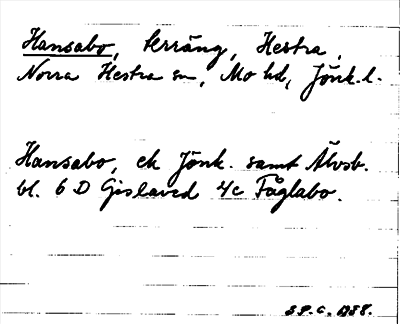 Hansabo, terräng, Hestra,
Norra Hestra sn, Mo hd, Jönk. l.
Hansabo, ek Jönk. samt Älvsb.
bl. 6 D Gislaved 4c Fåglabo.
S.P.C. 1958.